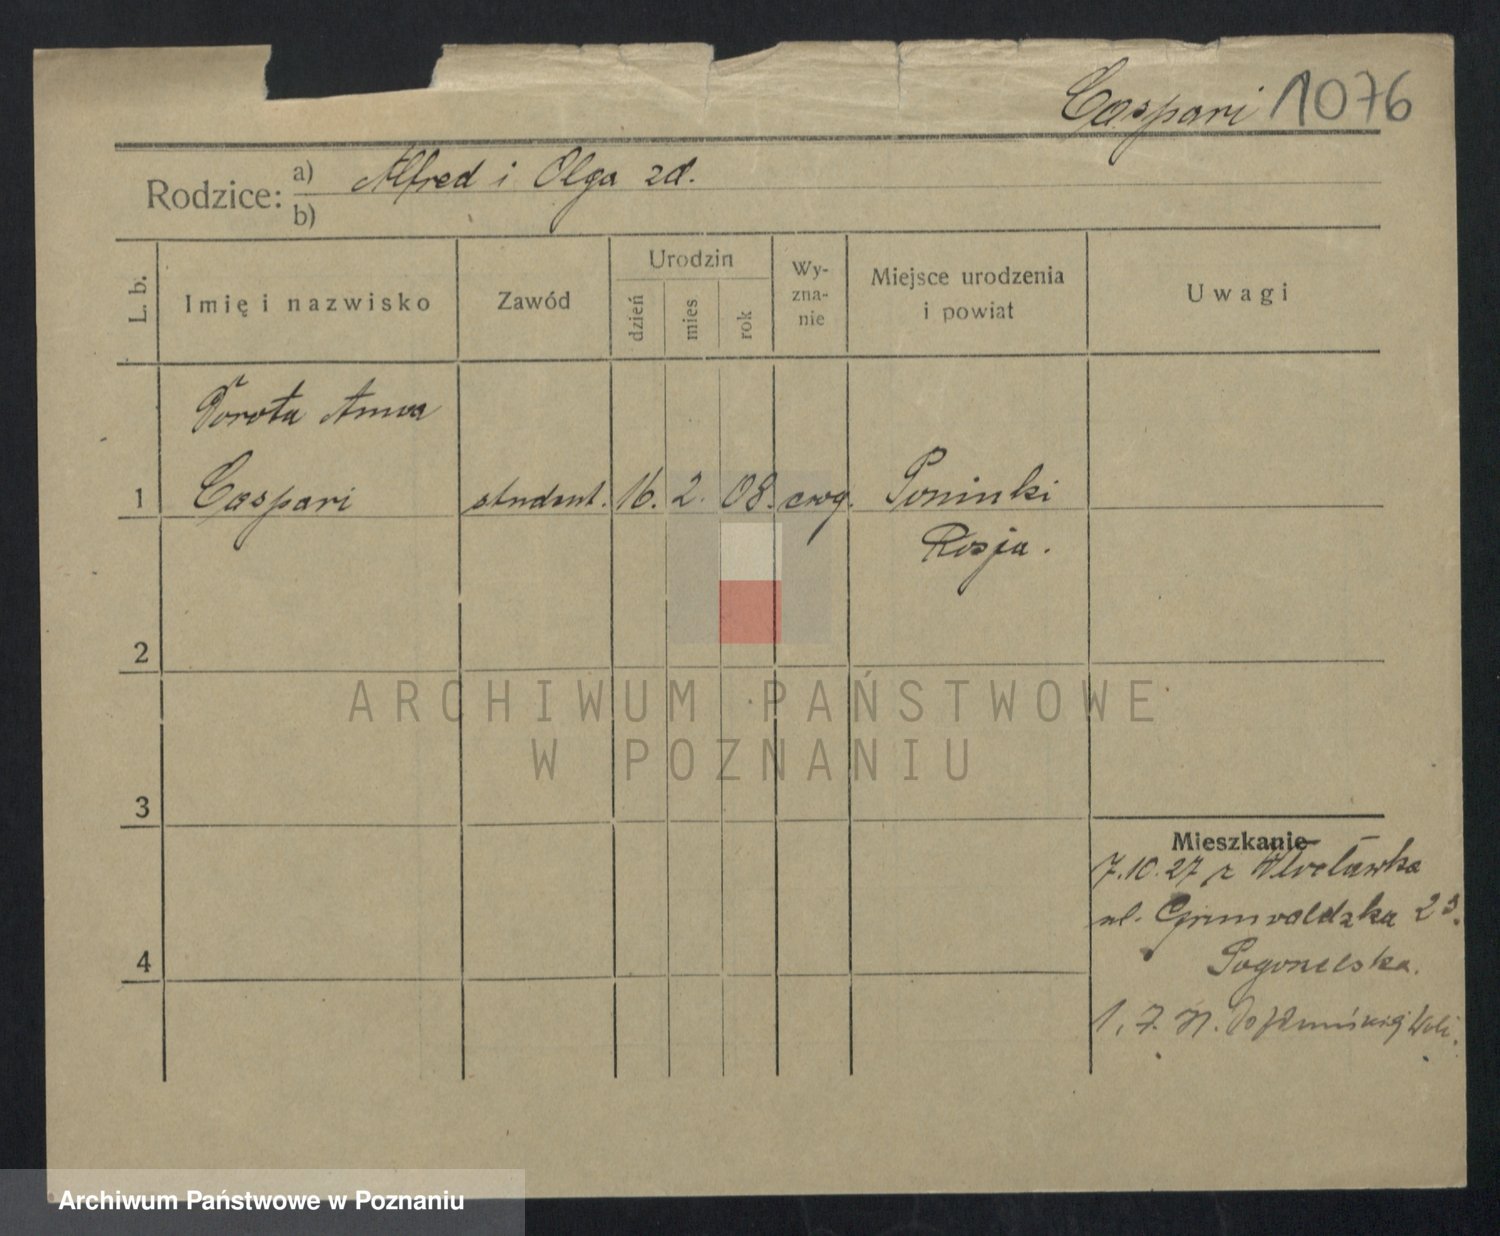 Caspari 1076
Rodzice: a) Alfred i Olga zd.
b)
L. b. Imię i nazwisko Zawód Urodzin dzień mies rok Wy-zna-nie Miejsce urodzenia i powiat Uwagi
Dorota Anna
1 Caspari student. 16. 2. 08. ewg. Poninki
Rosja.
2
3
4
Mieszkanie
7.10.27 z Włocławka
ul. Grunwaldzka 23.
1. 7.
ARCHIWUM PAŃSTWOWE
W POZNANIU
Archiwum Państwowe w Poznaniu